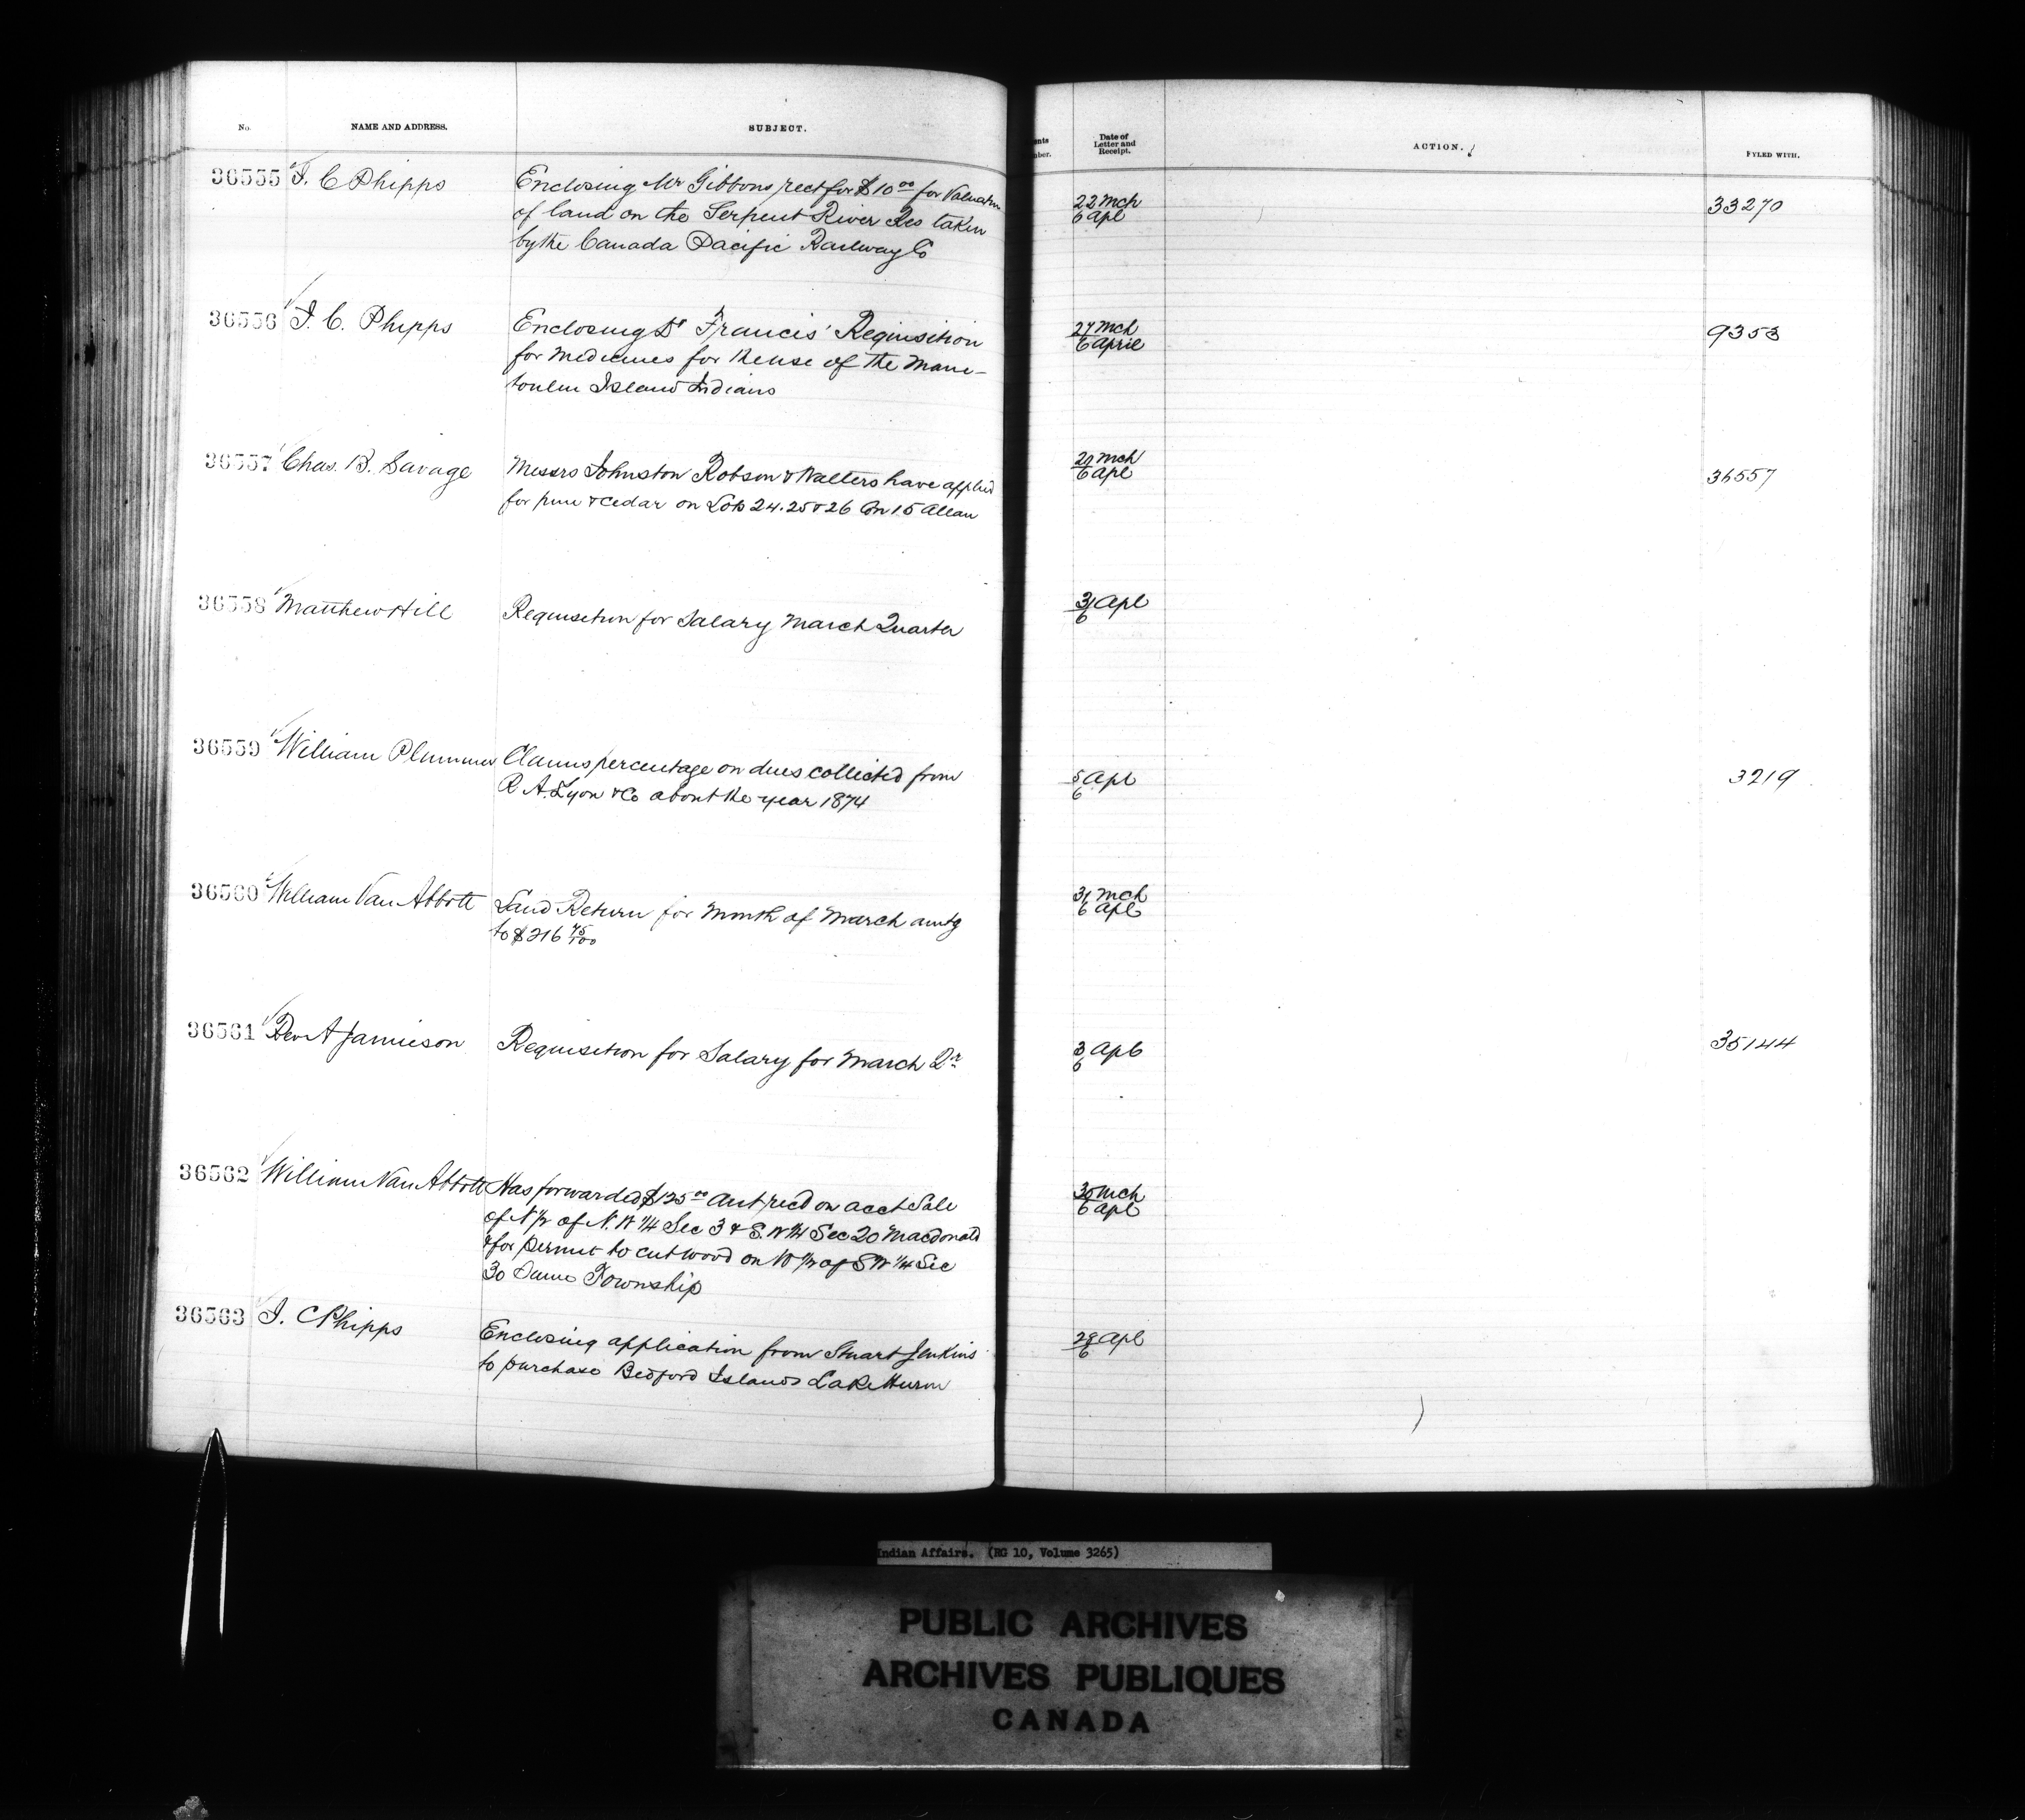 No. NAME AND ADDRESS. SUBJECT.
Date of Letter and Receipt. ACTION. FYLED WITH.
36555 J. C Phipps Enclosing Mr Gibbons rect for $10 00 for Valuation
of land on the Serpent River Res taken
by the Canada Pacific Railway Co
22 Mch
6 Apl
33270
36556 J. C. Phipps Enclosing Dr Francis' Requisition
for Medicines for the use of the Mani-
toulin Island Indians
27 Mch
6 April
9353
36557 Chas. B. Savage Messrs Johnston Robson & Walters have applied
for pine & cedar on Lots 24. 25 & 26 Con 15 Allan
29 Mch
6 Apl
36557
36558 Matthew Hill Requisition for Salary March Quarter
31 Apl
6
36559 William Plummer Claims percentage on dues collected from
R. A. Lyon & Co about the year 1874
5 Apl
6
3219
36560 William Van Abbott Land Return for Month of March amtg
to $216 75/100
31 Mch
6 Apl
36561 Rev A Jamieson Requisition for Salary for March Qr
3 Apl
6
35144
36562 William Van Abbott Has forwarded $125 00 amt recd on acct Sale
of N 1/2 of N. W 1/4 Sec 3 & S. W 1/4 Sec 20 Macdonald
& for permit to cut wood on W 1/2 of S W 1/4 Sec
30 Same Township
30 Mch
6 Apl
36563 J. C Phipps Enclosing application from Stuart Jenkins
to purchase Bedford Islands Lake Huron
29 Apl
6
Indian Affairs. (RG 10, Volume 3265)
PUBLIC ARCHIVES
ARCHIVES PUBLIQUES
CANADA